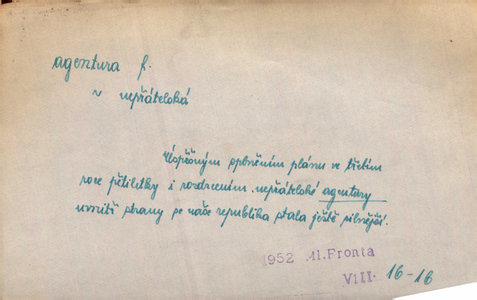 agentura f.
v nepřátelská
Úspěšným splněním plánu ve třetím
roce pětiletky i rozdrcením nepřátelské agentury
uvnitř strany se naše republika stala ještě silnější.
1952 Ml. Fronta
VIII. 16-16